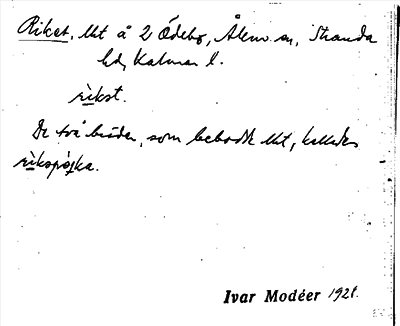 Riket, lht å 2 Ödebo, Ålem sn, Stranda
hd, Kalmar l.
rikst.
De två bröder, som bebodde lht, kallades
rikspojka.
Ivar Modéer 1921.